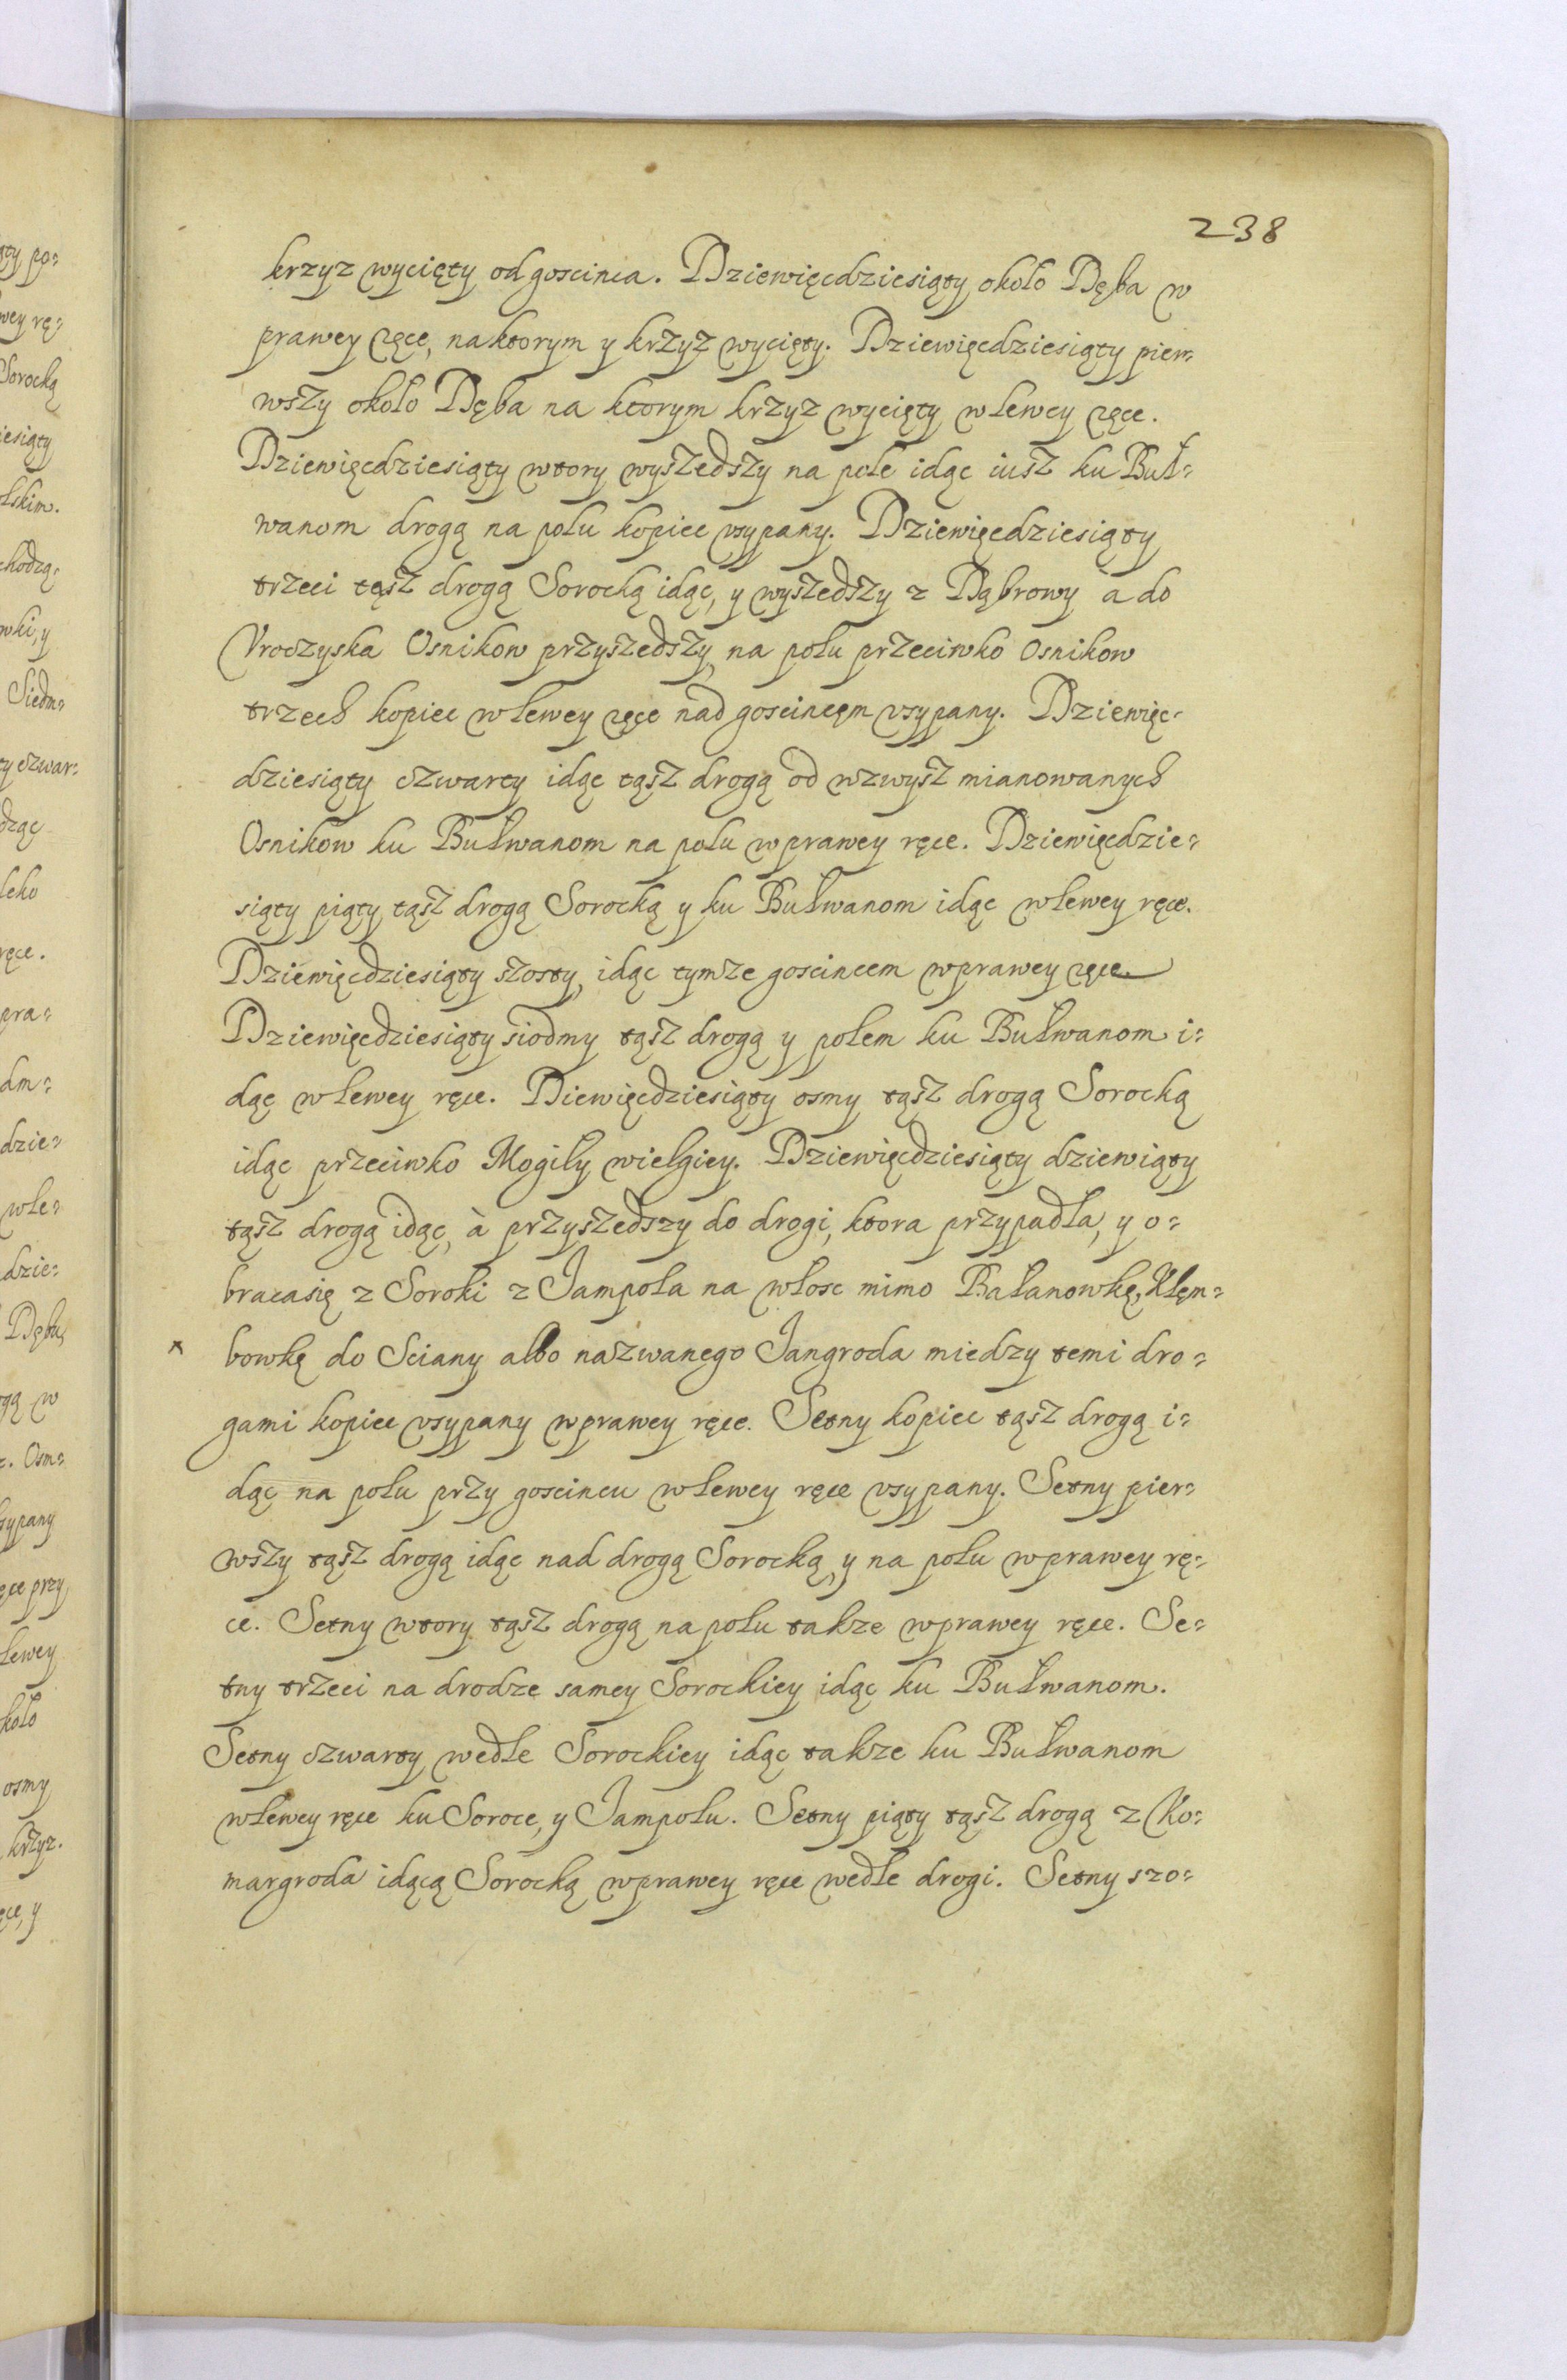 238
krzyz wycięty od goscinca. Dziewięcdziesiąty około Dęba w
prawey ręce, na ktorym y krzyz wycięty. Dziewięcdziesiąty pier=
wszy około Dęba na ktorym krzyz wycięty w lewey ręce.
Dziewięcdziesiąty wtory wyszedszy na pole idąc iusz ku Buł=
wanom drogą na polu kopiec vsypany. Dziewięcdziesiąty
trzeci tąsz drogą Sorocką idąc, y wyszedszy z Dąbrowy à do
Vroczyska Osnikow przyszedszy, na polu przeciwko Osnikow
trzech kopiec w lewey ręce nad goscincęm vsypany. Dziewięc=
dziesiąty czwarty idąc tąsz drogą od wzwysz mianowanych
Osnikow ku Bułwanom na polu w prawey ręce. Dziewięcdzie=
siąty piąty tąsz drogą Sorocką y ku Bułwanom idąc w lewey ręce.
Dziewięcdziesiąty szosty, idąc tymze goscincem w prawey ręce
Dziewięcdziesiąty siodmy tąsz drogą y polem ku Bułwanom i=
dąc w lewey ręce. Diewięcdziesiąty osmy tąsz drogą Sorocką
idąc przeciwko Mogiły wielgiey. Dziewięcdziesiąty dziewiąty
tąsz drogą idąc, à przyszedszy do drogi, ktora przypadła, y o=
braca się z Soroki z Jampola na włosc mimo Bałanowkę, Klęn=
x bowkę do Sciany albo nazwanego Jangroda miedzy temi dro=
gami kopiec vsypany w prawey ręce. Setny kopiec tąsz drogą i=
dąc na polu przy goscincu w lewey ręce vsypany. Setny pier=
wszy tąsz drogą idąc nad drogą Sorocką, y na polu w prawey rę=
ce. Setny wtory tąsz drogą na polu takze w prawey ręce. Se=
tny trzeci na drodze samey Sorockiey idąc ku Bułwanom.
Setny czwarty wedle Sorockiey idąc takze ku Bułwanom
w lewey ręce ku Soroce, y Jampolu. Setny piąty tąsz drogą z Ko=
margroda idącą Sorocką w prawey ręce wedle drogi. Setny szo=